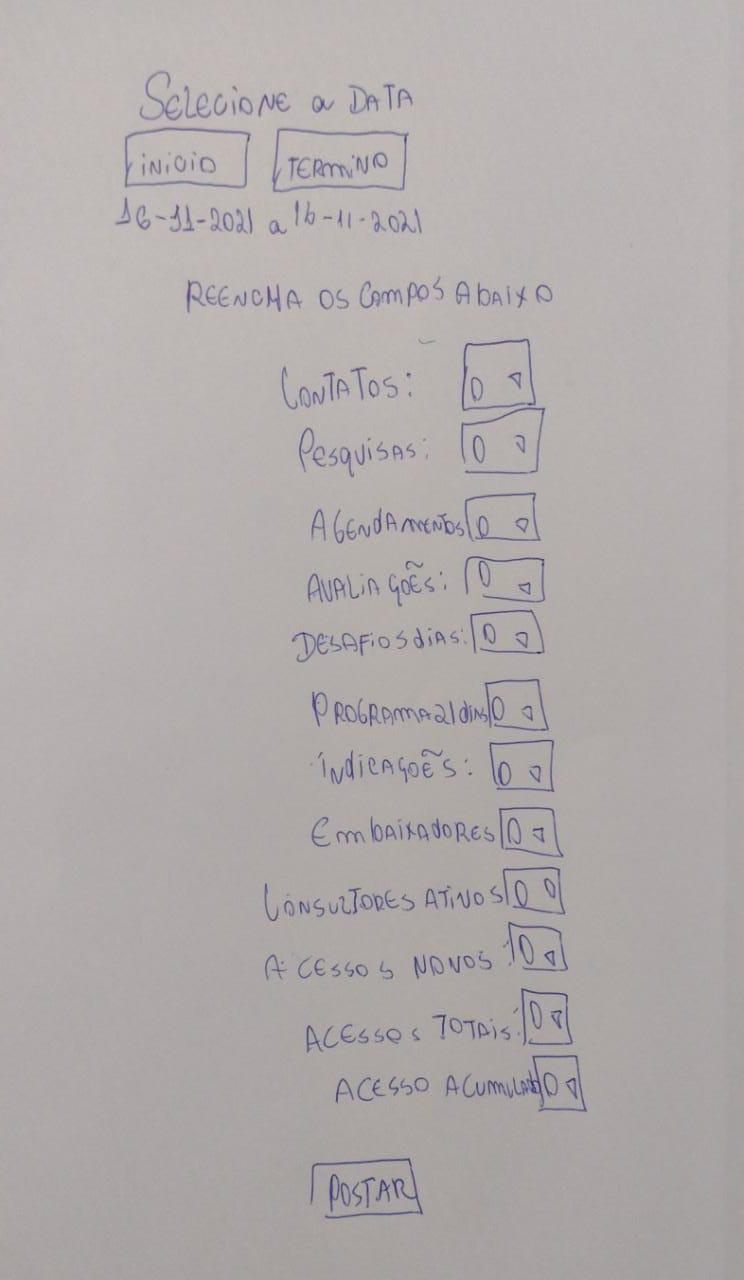 SELECIONE a DATA
INICIO TERMINO
16-11-2021 a 16-11-2021
REENCHA OS CAMPOS ABAIXO
CONTATOS: 0
Pesquisas: 0
AGENDAMENTOS 0
AVALIAÇÕES: 0
DESAFIOS dIAS: 0
PROGRAMA 21 dIAS 0
INdICAÇOẼS: 0
EmbAIXADORES 0
CONSULTORES ATIVOS 0 0
ACESSOS NOVOS: 0
ACESSOS TOTAIS: 0
ACESSO ACUMULADO 0
POSTAR